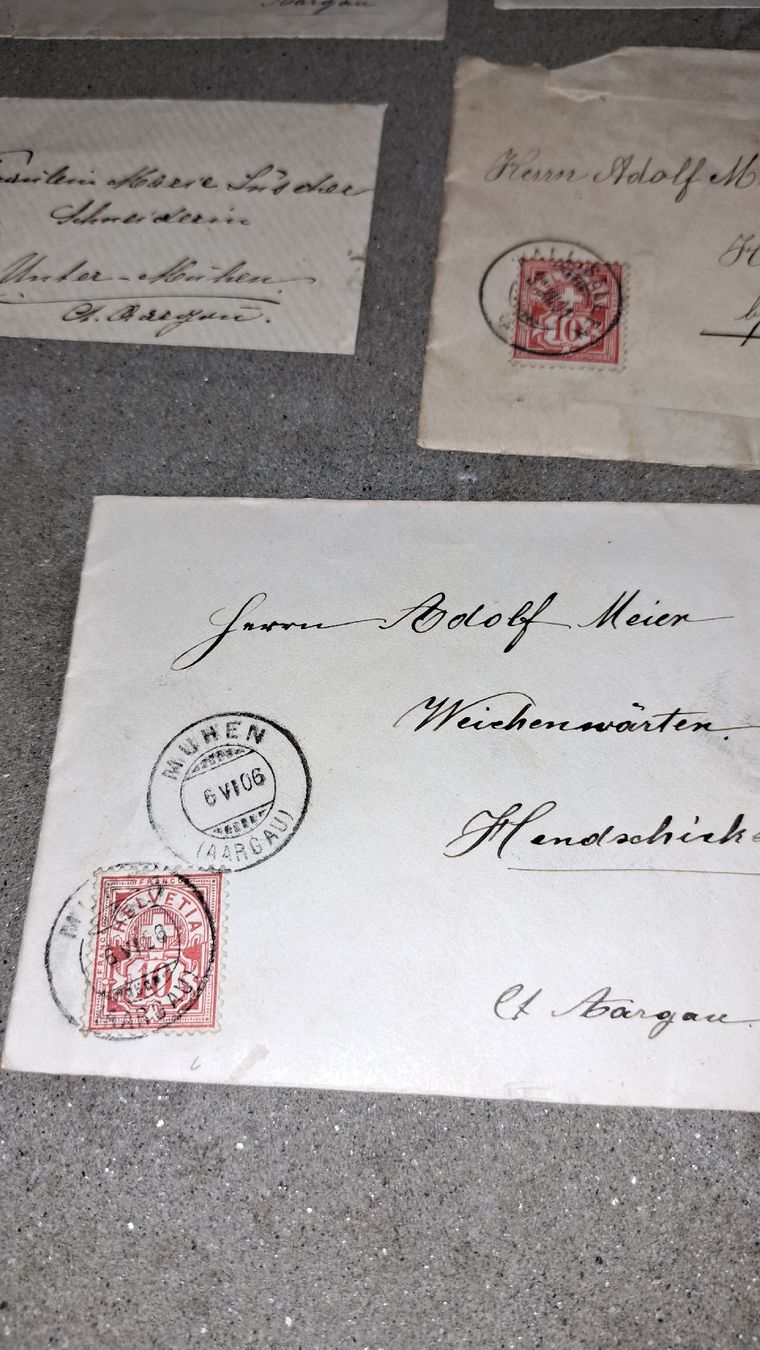 Aargau
Fräulein Marie Lüscher
Schneiderin
Unter-Muhen
Ct. Aargau.
Herrn Adolf M
10
Herrn Adolf Meier
Weichenwärter.
Hendschick
Ct Aargau
MUHEN
6 VI 06
(AARGAU)
FRANCO
HELVETIA
10